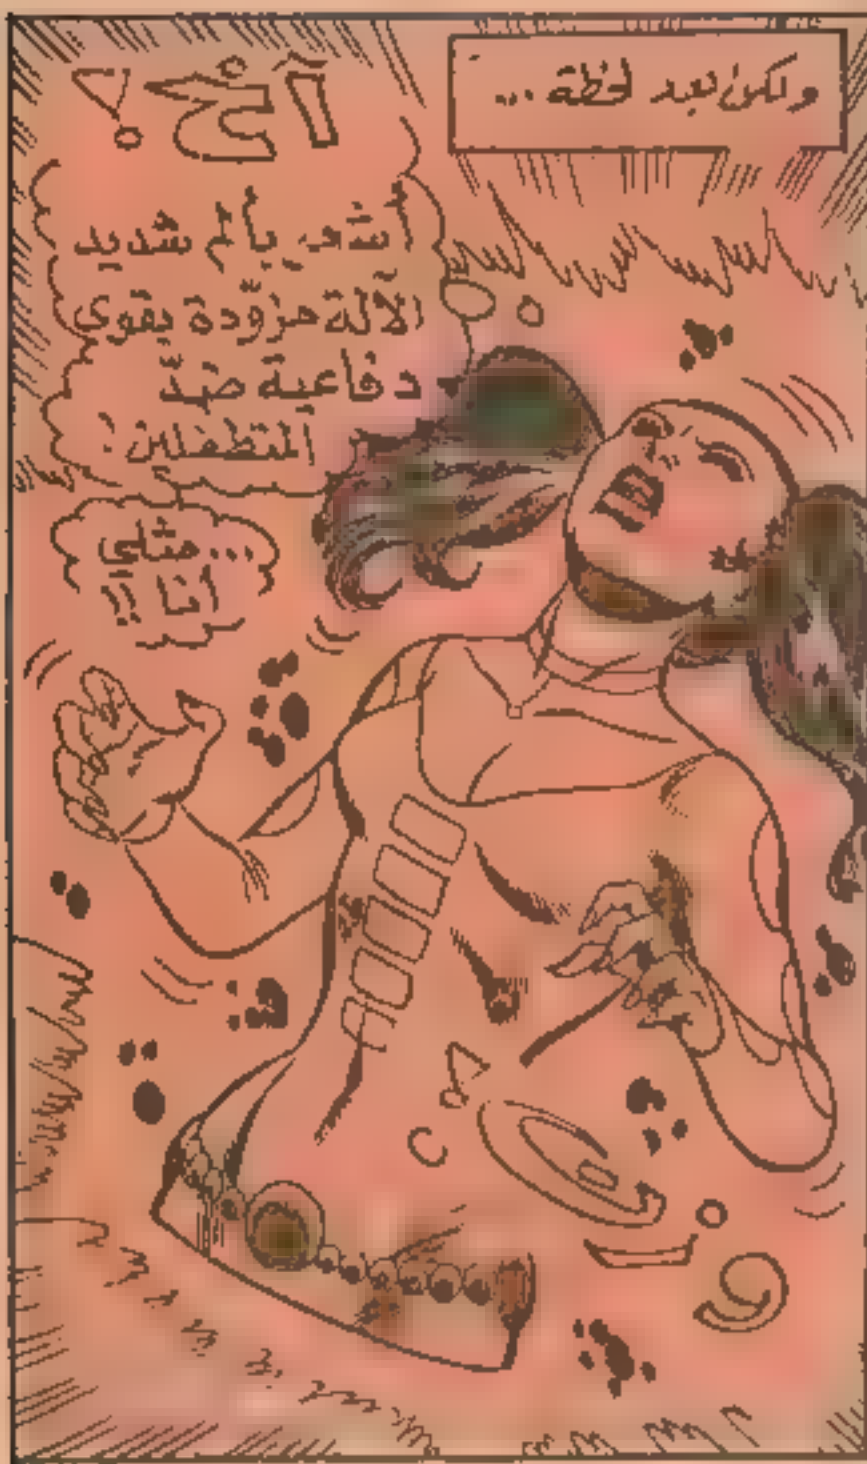 ولكن بعد لحظة ...
آخ !
أشعر بألم شديد
الآلة مزوّدة بقوى
دفاعية ضدّ
المتطفلين !
... مثلي
أنا !!